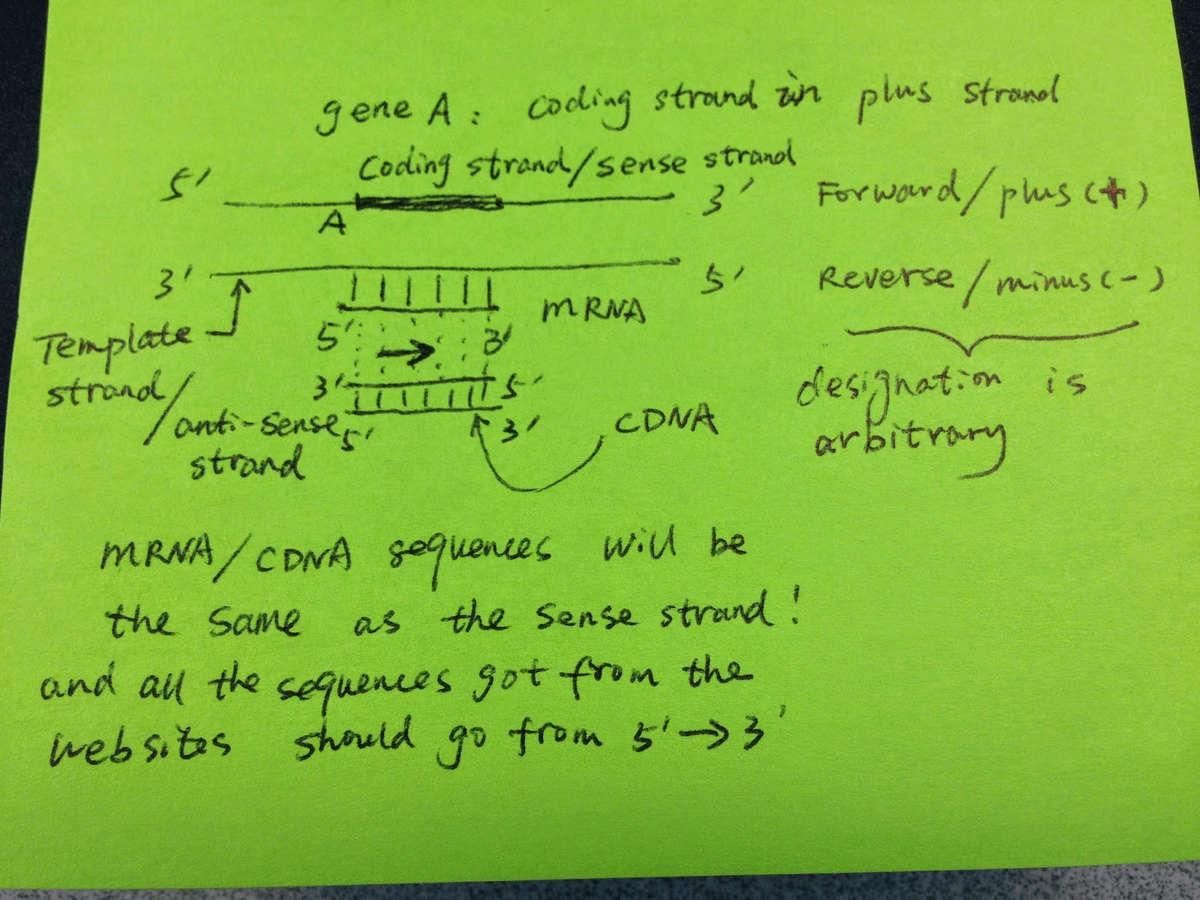 gene A: coding strand in plus strand
Coding strand/sense strand
5' 3' Forward/plus (+)
A
3' 5' Reverse/minus (-)
mRNA
5' 3'
Template
strand/
anti-sense
strand
3' 5'
5' 3'
CDNA
designation is
arbitrary
mRNA/CDNA sequences will be
the same as the sense strand!
and all the sequences got from the
websites should go from 5'→3'